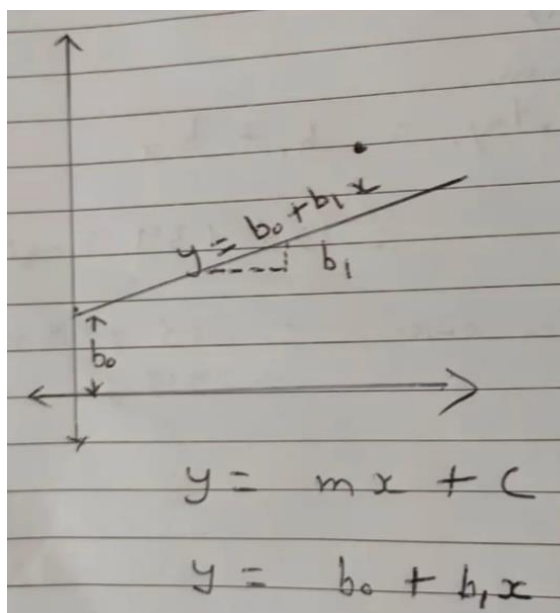 y = b₀ + b₁x
b₁
b₀
y = mx + C
y = b₀ + b₁x